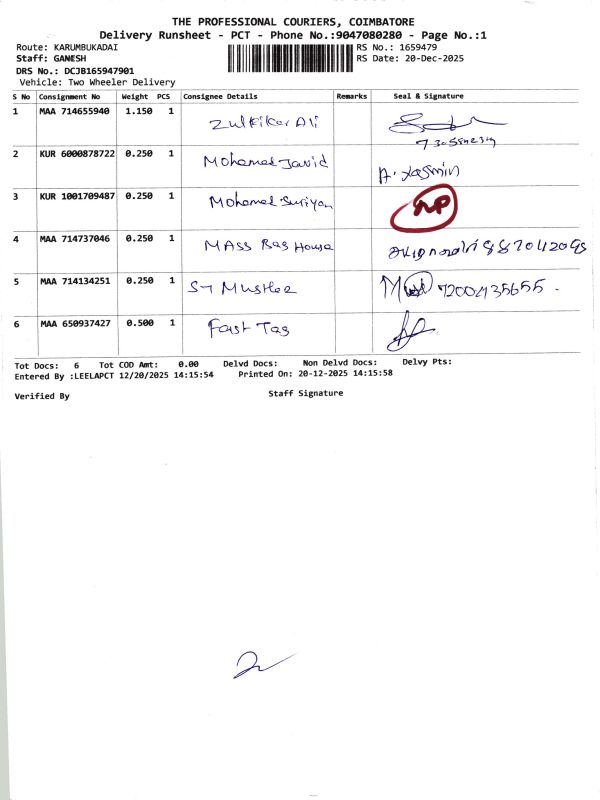 THE PROFESSIONAL COURIERS, COIMBATORE
Delivery Runsheet - PCT - Phone No.:9047080280 - Page No.:1
Route: KARUMBUKADAI
Staff: GANESH
DRS No.: DCJB165947901
Vehicle: Two Wheeler Delivery
RS No.: 1659479
RS Date: 20-Dec-2025
S No Consignment No Weight PCS Consignee Details Remarks Seal & Signature
1 MAA 714655940 1.150 1 Zulfiker Ali
2 KUR 6000878722 0.250 1 Mohamed Javid A. Yasmin
3 KUR 1001709487 0.250 1 Mohamed Suriyan NP
4 MAA 714737046 0.250 1 MASS Bag House
5 MAA 714134251 0.250 1 ST 7200435655.
6 MAA 650937427 0.500 1 Fast Tag
Tot Docs: 6 Tot COD Amt: 0.00 Delvd Docs: Non Delvd Docs: Delvy Pts:
Entered By :LEELAPCT 12/20/2025 14:15:54 Printed On: 20-12-2025 14:15:58
Verified By Staff Signature